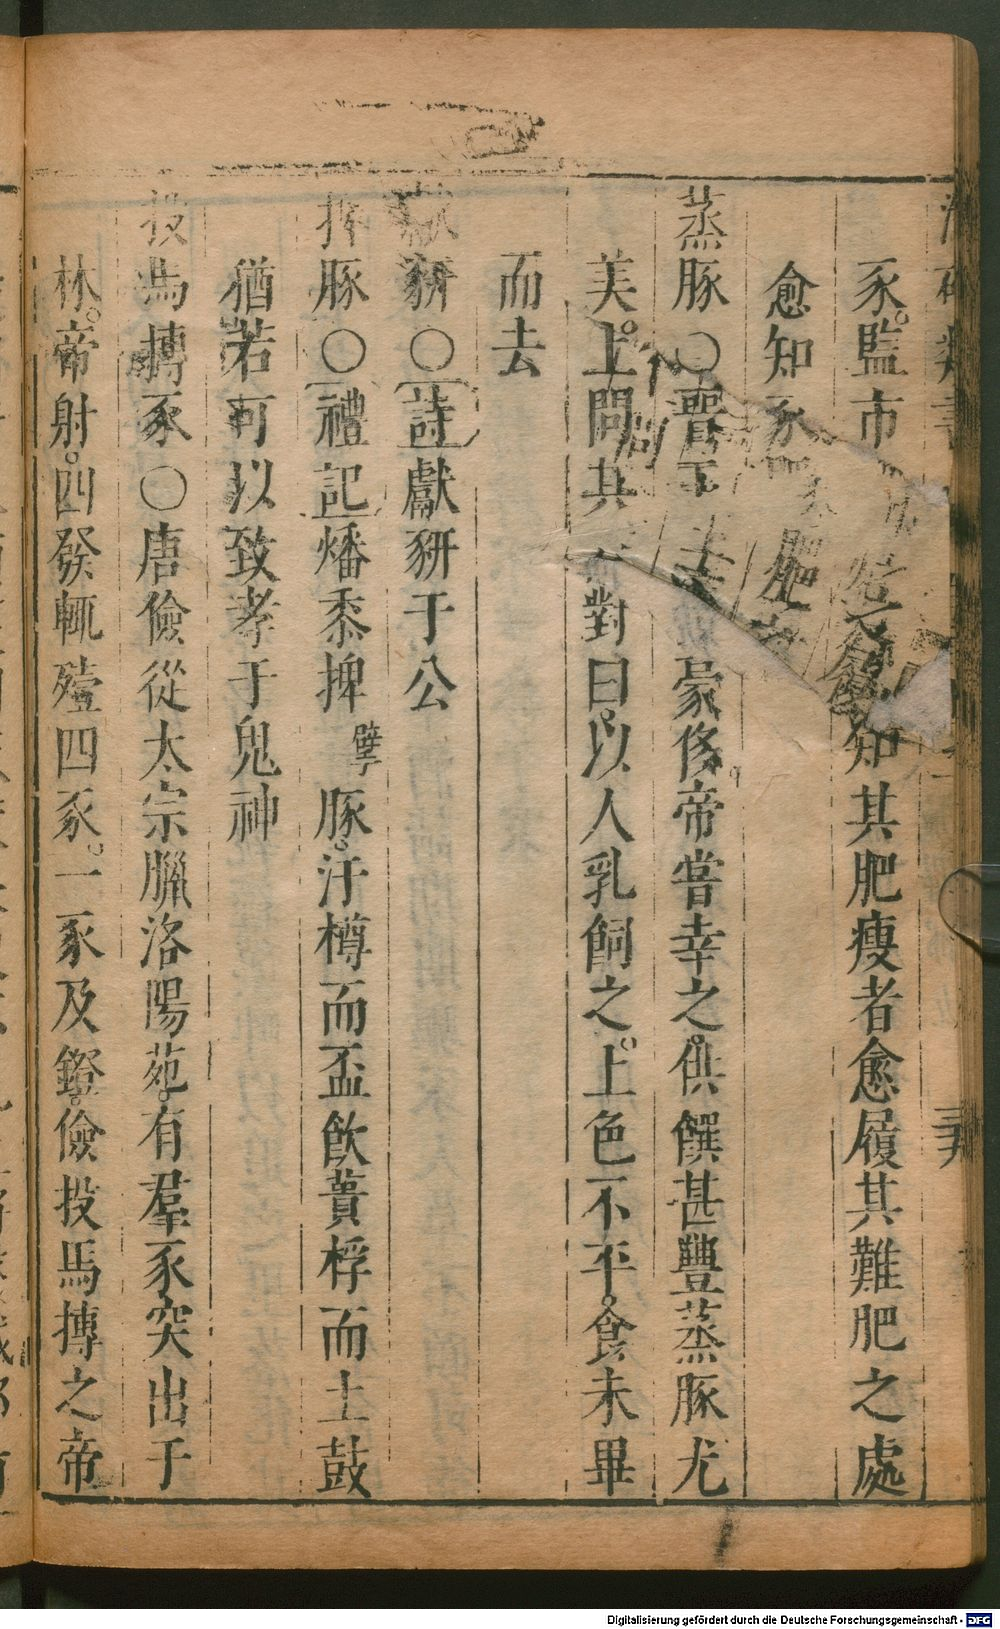 豕監市履豕知其肥瘦者愈履其難肥之處
愈知豕肥
蒸豚○晉王濟豪侈帝嘗幸之供饌甚豐蒸豚尤
美上問其對曰以人乳飼之上色不平食未畢
而去
獻豜○詩獻豜于公
捭豚○禮記燔黍捭擘豚汙樽而盃飲蕢桴而土鼓
猶若可以致孝于鬼神
投馬搏豕○唐儉從太宗臘洛陽苑有羣豕突出于
林帝射四發輒殪四豕一豕及鐙儉投馬搏之帝
Digitalisierung gefördert durch die Deutsche Forschungsgemeinschaft - DFG